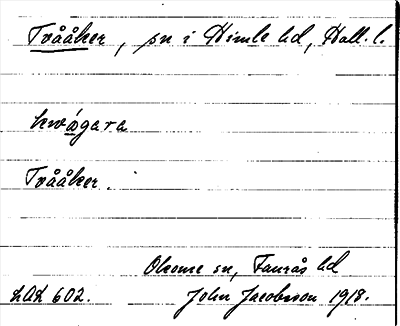 Tvååker, sn i Himle hd, Hall. l.
kwågara
Tvååker.
Okome sn, Faurås hd
LAL 602. John Jacobsson 1918.